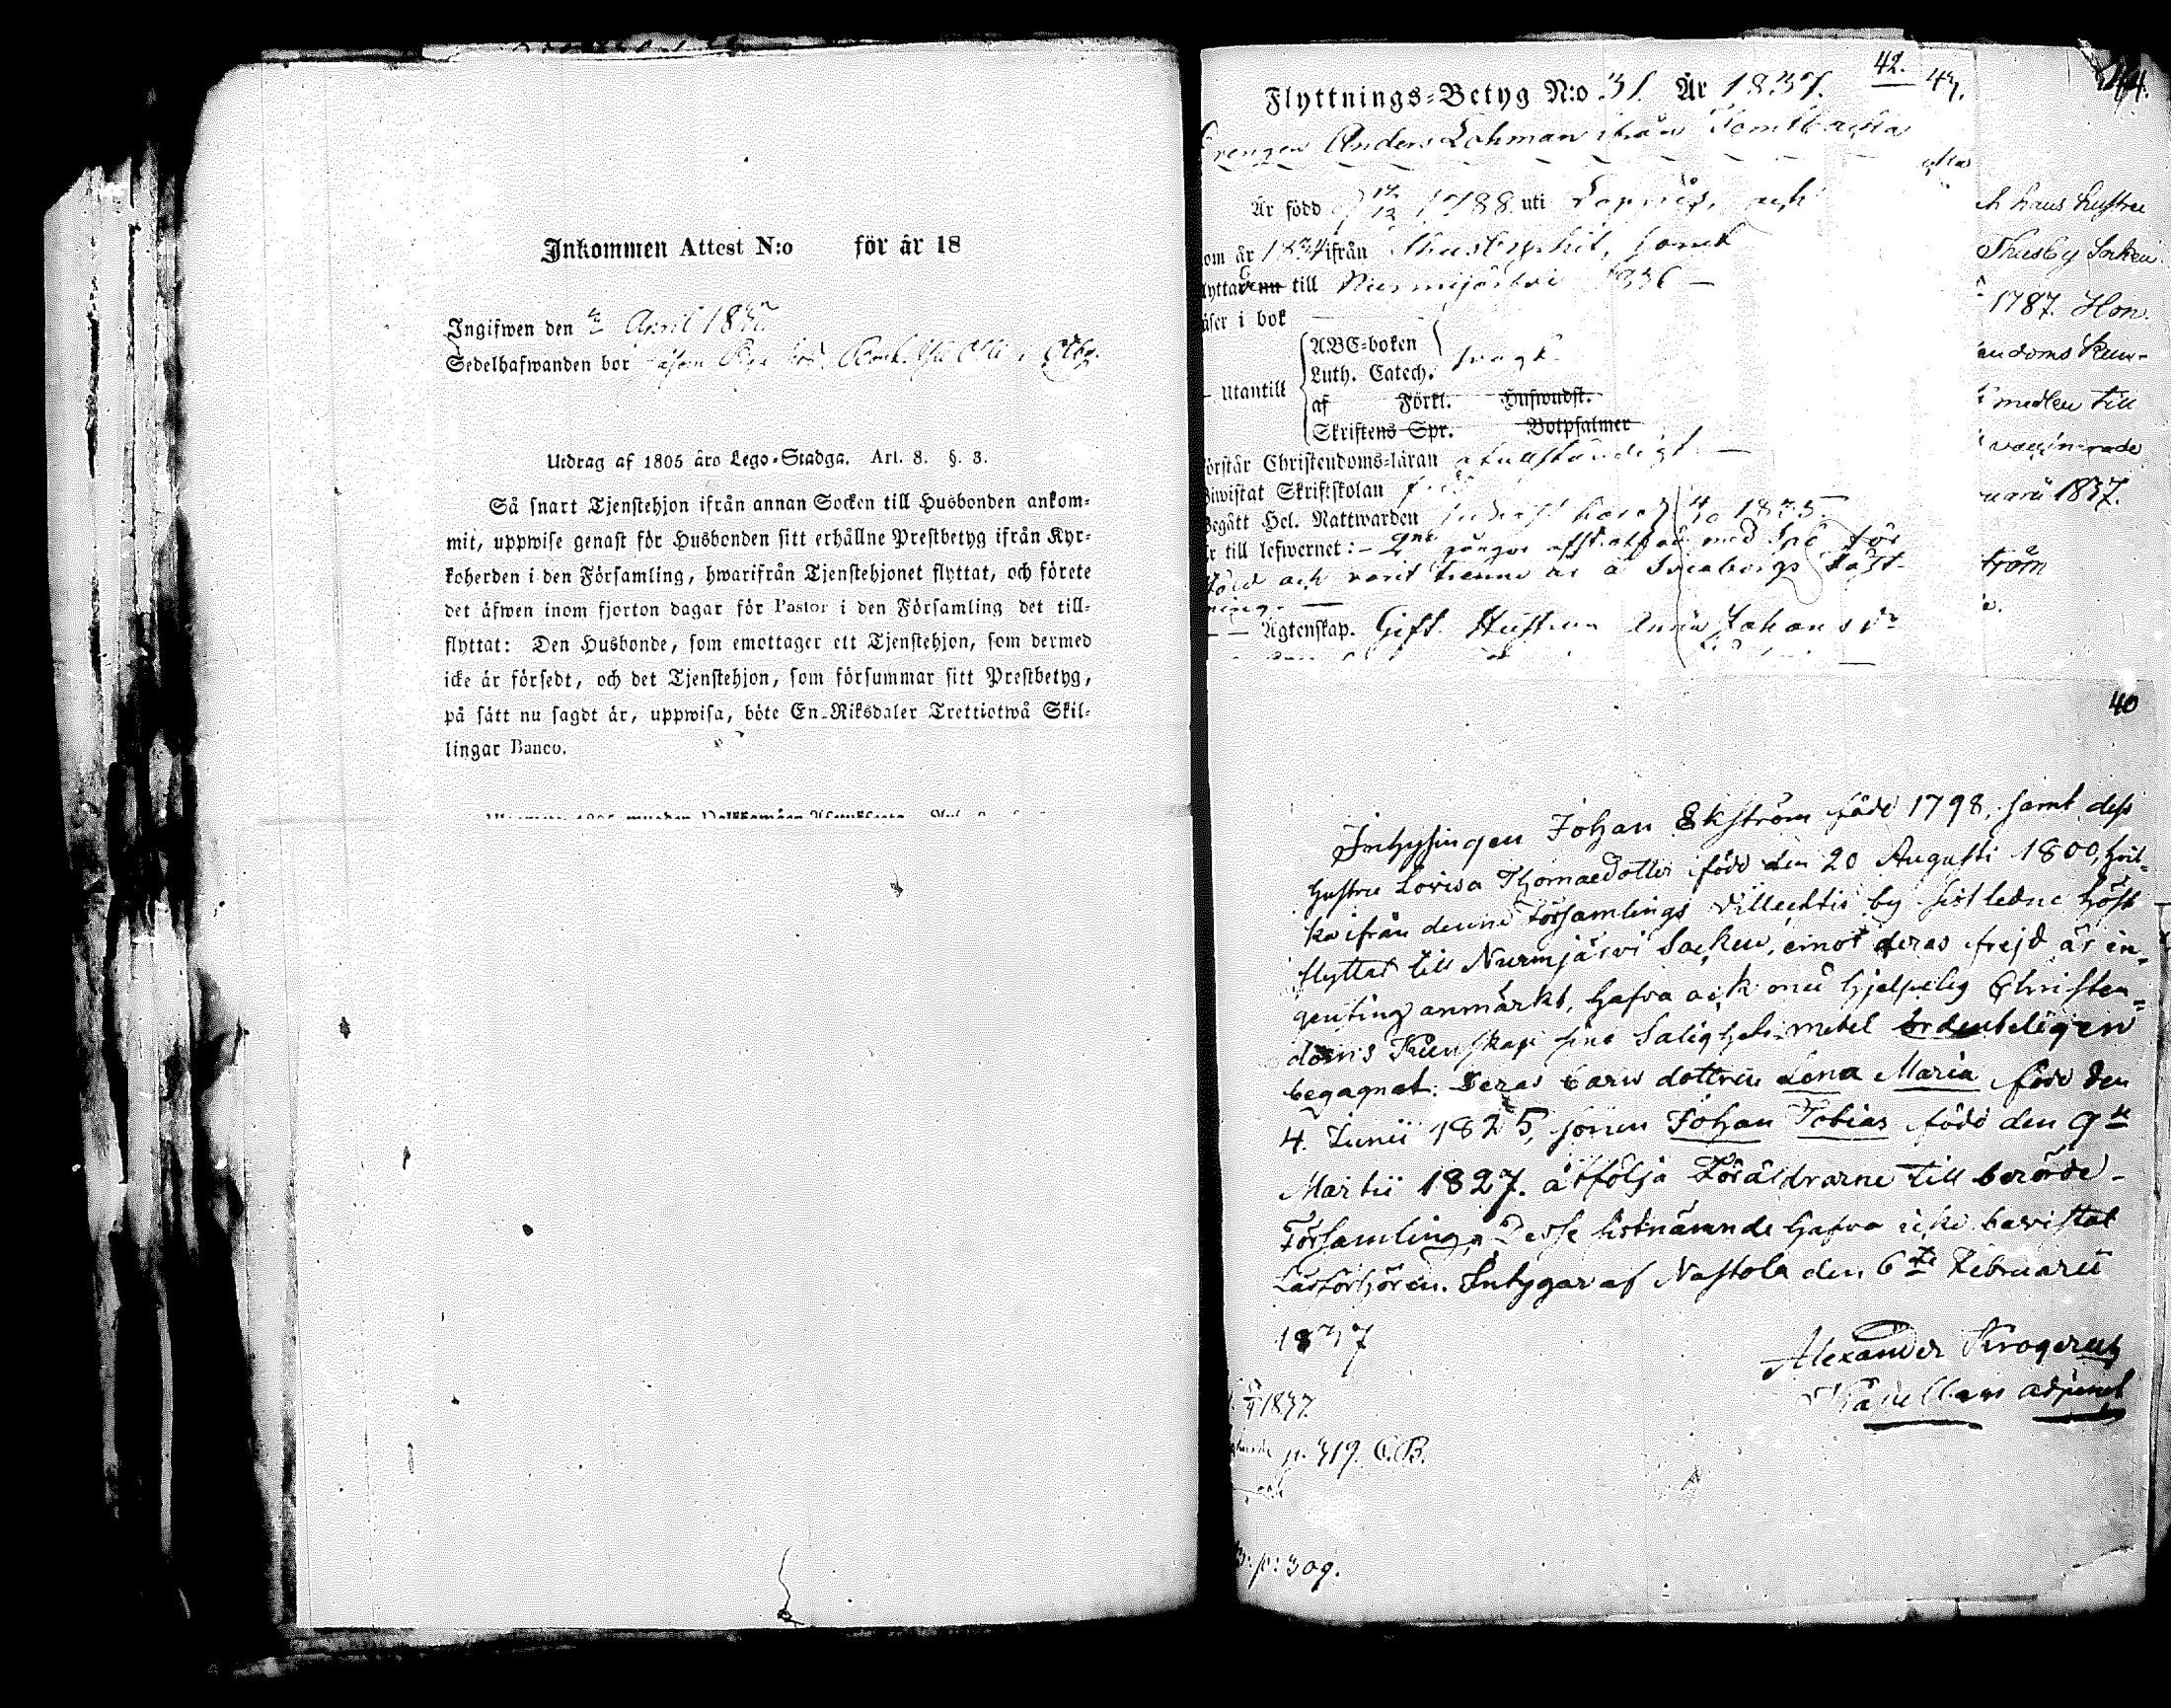 Inkommen Attest N:o för år 18
Ingifwen den April 183
Sedelhafwanden bor
Utdrag af 1805 års Lego-Stadga. Art. 8. §. 3.
Så snart Tjenstehjon ifrån annan Socken till Husbonden ankom-
mit, uppwise genast för Husbonden sitt erhållne Prestbetyg ifrån Kyr-
koherden i den Församling, hwarifrån Tjenstehjonet flyttat, och förete
det äfwen inom fjorton dagar för Pastor i den Församling det till-
flyttat: Den Husbonde, som emottager ett Tjenstehjon, som dermed
icke är försedt, och det Tjenstehjon, som försummar sitt Prestbetyg,
på sätt nu sagdt är, uppwisa, böte En Riksdaler Trettiotwå Skil-
lingar Banco.
42.
43.
44.
Flyttnings-Betyg N:o 31. År 1837.
Drengen Anders Lohman ifrån
Är född 1788 uti och
om år 1834 ifrån samt
lyttar till Nurmijärvi 1836 —
äser i bok —
— utantill
ABC-boken
Luth. Catech. svagt
af Förkl. Hufwudst.
Skriftens Spr. Botpsalmer
örstår Christendoms-läran ofullständigt —
iwistat Skriftskolan
egått Hel. Nattwarden 1835
r till lefwernet: — 2ne gånger afstraffad med Spö för
stöld och varit trenne år å Sveaborgs Fäst-
ning. —
— — Ägtenskap. Gift. Hustrun Anna Johansdr
h hans hustru
Thusby Socken
1787. Hon
endoms Kun-
medlen till
vaccinerade
uarii 1837.
tröm
40
Inhysingen Johan Ekström född 1798, samt dess
hustru Lovisa Thomaedotter född den 20 Augusti 1800, hvil-
ka ifrån denna Församlings Villechtis by sistledne höst
flyttat till Nurmjärvi Socken, emot deras frejd är in-
genting anmärkt, hafva ock med hjelpelig Christen-
doms Kunskap sine Salighets medel ordenteligen
begagnat. Deras barn dottren Lena Maria född den
4. Junii 1825, sonen Johan Tobias född den 9de
Martii 1827. åtfölja Föräldrarne till berörde
Församling. Desse sistnämnde hafva icke bevistat
Läsförhören. Intygar af Nastola den 6te Februarii
1837
Alexander Krogerus
Capellans adjunct
1837.
p. 319. C.B.
p: 309.